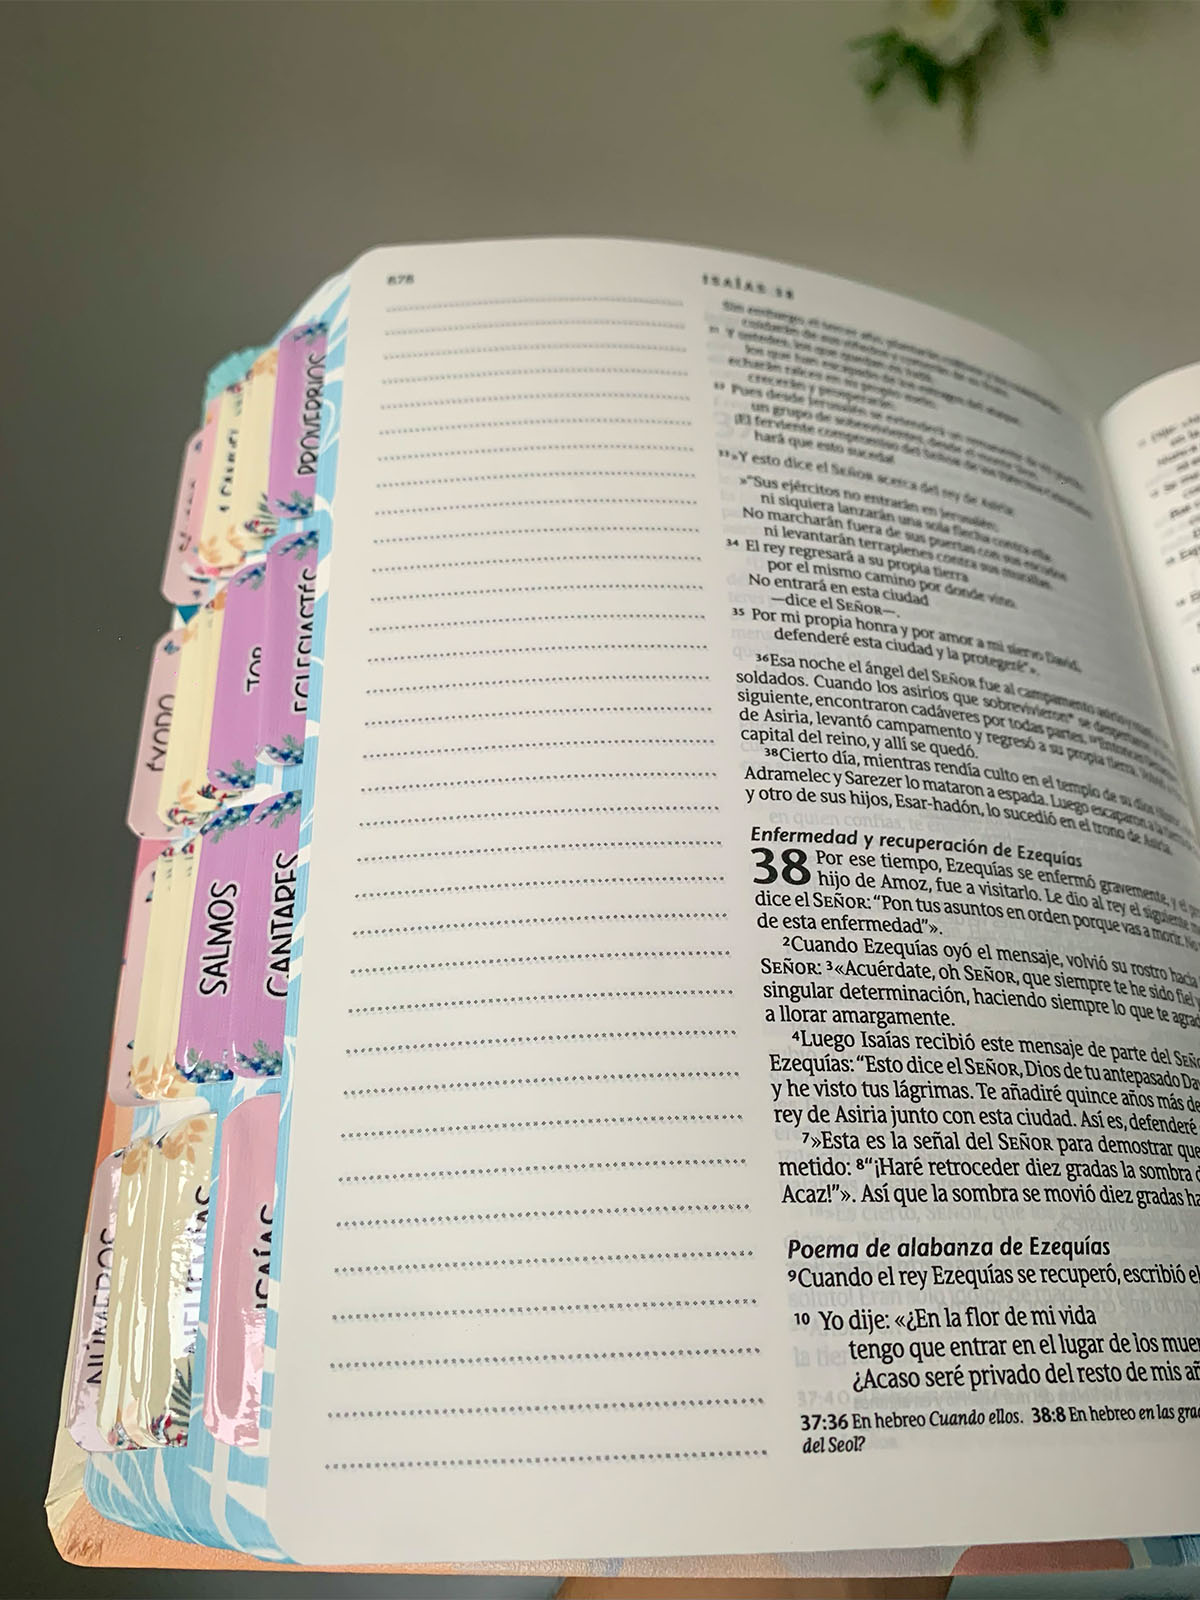 678
ISAÍAS 38
Sin embargo, el tercer año,
31 Y ustedes, los que quedan en Judá,
los que han escapado de los estragos del ataque,
echarán raíces en su propio suelo,
crecerán y prosperarán.
32 Pues desde Jerusalén se extenderá un remanente de mi pueblo,
un grupo de sobrevivientes, desde el monte Sion.
¡El ferviente compromiso del SEÑOR de los Ejércitos Celestiales
hará que esto suceda!
33»Y esto dice el SEÑOR acerca del rey de Asiria:
»"Sus ejércitos no entrarán en Jerusalén;
ni siquiera lanzarán una sola flecha contra ella.
No marcharán fuera de sus puertas con sus escudos
ni levantarán terraplenes contra sus murallas.
34 El rey regresará a su propia tierra
por el mismo camino por donde vino.
No entrará en esta ciudad
—dice el SEÑOR—.
35 Por mi propia honra y por amor a mi siervo David,
defenderé esta ciudad y la protegeré"».
36Esa noche el ángel del SEÑOR fue al campamento asirio y
soldados. Cuando los asirios que sobrevivieron* se despertaron
siguiente, encontraron cadáveres por todas partes. 37Entonces
de Asiria, levantó campamento y regresó a su propia tierra. Volvió
capital del reino, y allí se quedó.
38Cierto día, mientras rendía culto en el templo de su dios
Adramelec y Sarezer lo mataron a espada. Luego escaparon a la
y otro de sus hijos, Esar-hadón, lo sucedió en el trono de Asiria.
Enfermedad y recuperación de Ezequías
38 Por ese tiempo, Ezequías se enfermó gravemente, y el
hijo de Amoz, fue a visitarlo. Le dio al rey el siguiente
dice el SEÑOR: "Pon tus asuntos en orden porque vas a morir. No
de esta enfermedad"».
2Cuando Ezequías oyó el mensaje, volvió su rostro hacia
SEÑOR: 3«Acuérdate, oh SEÑOR, que siempre te he sido fiel y
singular determinación, haciendo siempre lo que te agrad
a llorar amargamente.
4Luego Isaías recibió este mensaje de parte del SEÑO
Ezequías: "Esto dice el SEÑOR, Dios de tu antepasado Da
y he visto tus lágrimas. Te añadiré quince años más de
rey de Asiria junto con esta ciudad. Así es, defenderé
7»Esta es la señal del SEÑOR para demostrar que
metido: 8"¡Haré retroceder diez gradas la sombra d
Acaz!"». Así que la sombra se movió diez gradas ha
Poema de alabanza de Ezequías
9Cuando el rey Ezequías se recuperó, escribió el
10 Yo dije: «¿En la flor de mi vida
tengo que entrar en el lugar de los muer
¿Acaso seré privado del resto de mis añ
37:36 En hebreo Cuando ellos. 38:8 En hebreo en las grad
del Seol?
PROVERBIOS
JOB
ECLESIASTÉS
ÉXODO
SALMOS
CANTARES
NÚMEROS
NEHEMÍAS
ISAÍAS